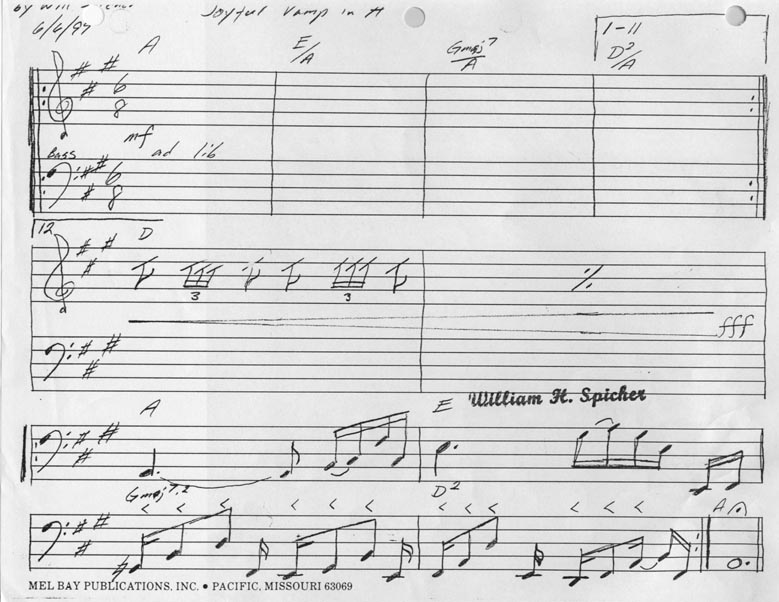 by Will
Joyful Vamp in A
6/6/97
A E/A Gmaj7/A 1-11 D2/A
6 8
mf
Bass ad lib
6 8
12 D
3 3
fff
A E William H. Spicher
Gmaj7,2 D2
A
MEL BAY PUBLICATIONS, INC. • PACIFIC, MISSOURI 63069